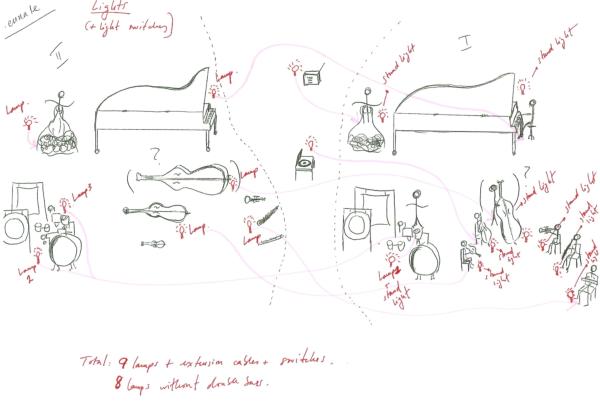 Lights
(+ light switches)
II
I
Lamp.
Lamp.
stand light
stand light
?
Lamp
Lamp
Lamp
Lamp
Lamp
2
?
stand light
stand light
stand light
stand light
stand light
stand light
Lamp
+
stand
light
Total: 9 lamps + extension cables + switches.
8 lamps without double bass.